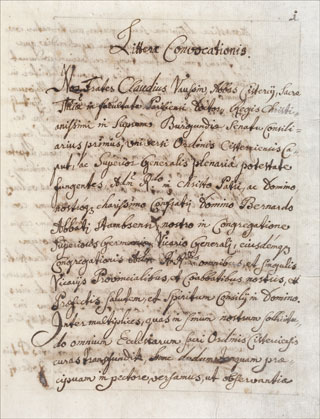 1
Litteræ Convocationis.
Nos Frater Claudius Vaussin, Abbas Cistercij, Sacræ
in facultate Parisiensi Doctor, Regis Christi-
anissimi in Supremo Burgundiæ Senatu Consili-
arius primus, universi Ordinis Cisterciensis Ca-
put, ac Superior Generalis plenaria potestate
fungentes, in Christo Patri, ac Domino
charissimo Domino Bernardo
Abbati Stambsensi, nostro in Congregatione
Superioris Germaniæ Vicario Generali, eiusdemq
Congregationis omnibus et singulis
Vicarijs Provincialibus, et Coabbatibus nostris, et
Præfectis Salutem, et Spiritum Consilij in Domino.
Inter multiplices, quas in sinum nostrum sollicitu-
do omnium Ecclesiarum sacri Ordinis Cisterciensis
curas transfundit, præ
cipuam in pectore versamus, ut observantiæ